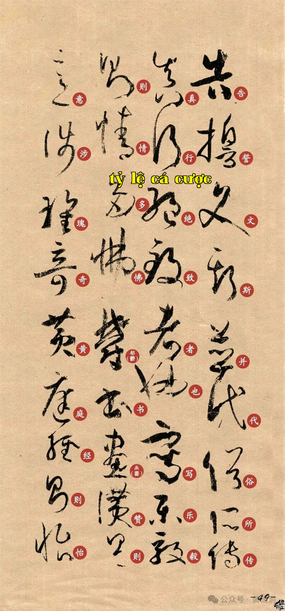 告誓文斯并代俗所传
真行绝致者也写乐毅
则情多怫郁书画赞则
意涉瑰奇黄庭经则怡
tỷ lệ cá cược
公众号
-49-